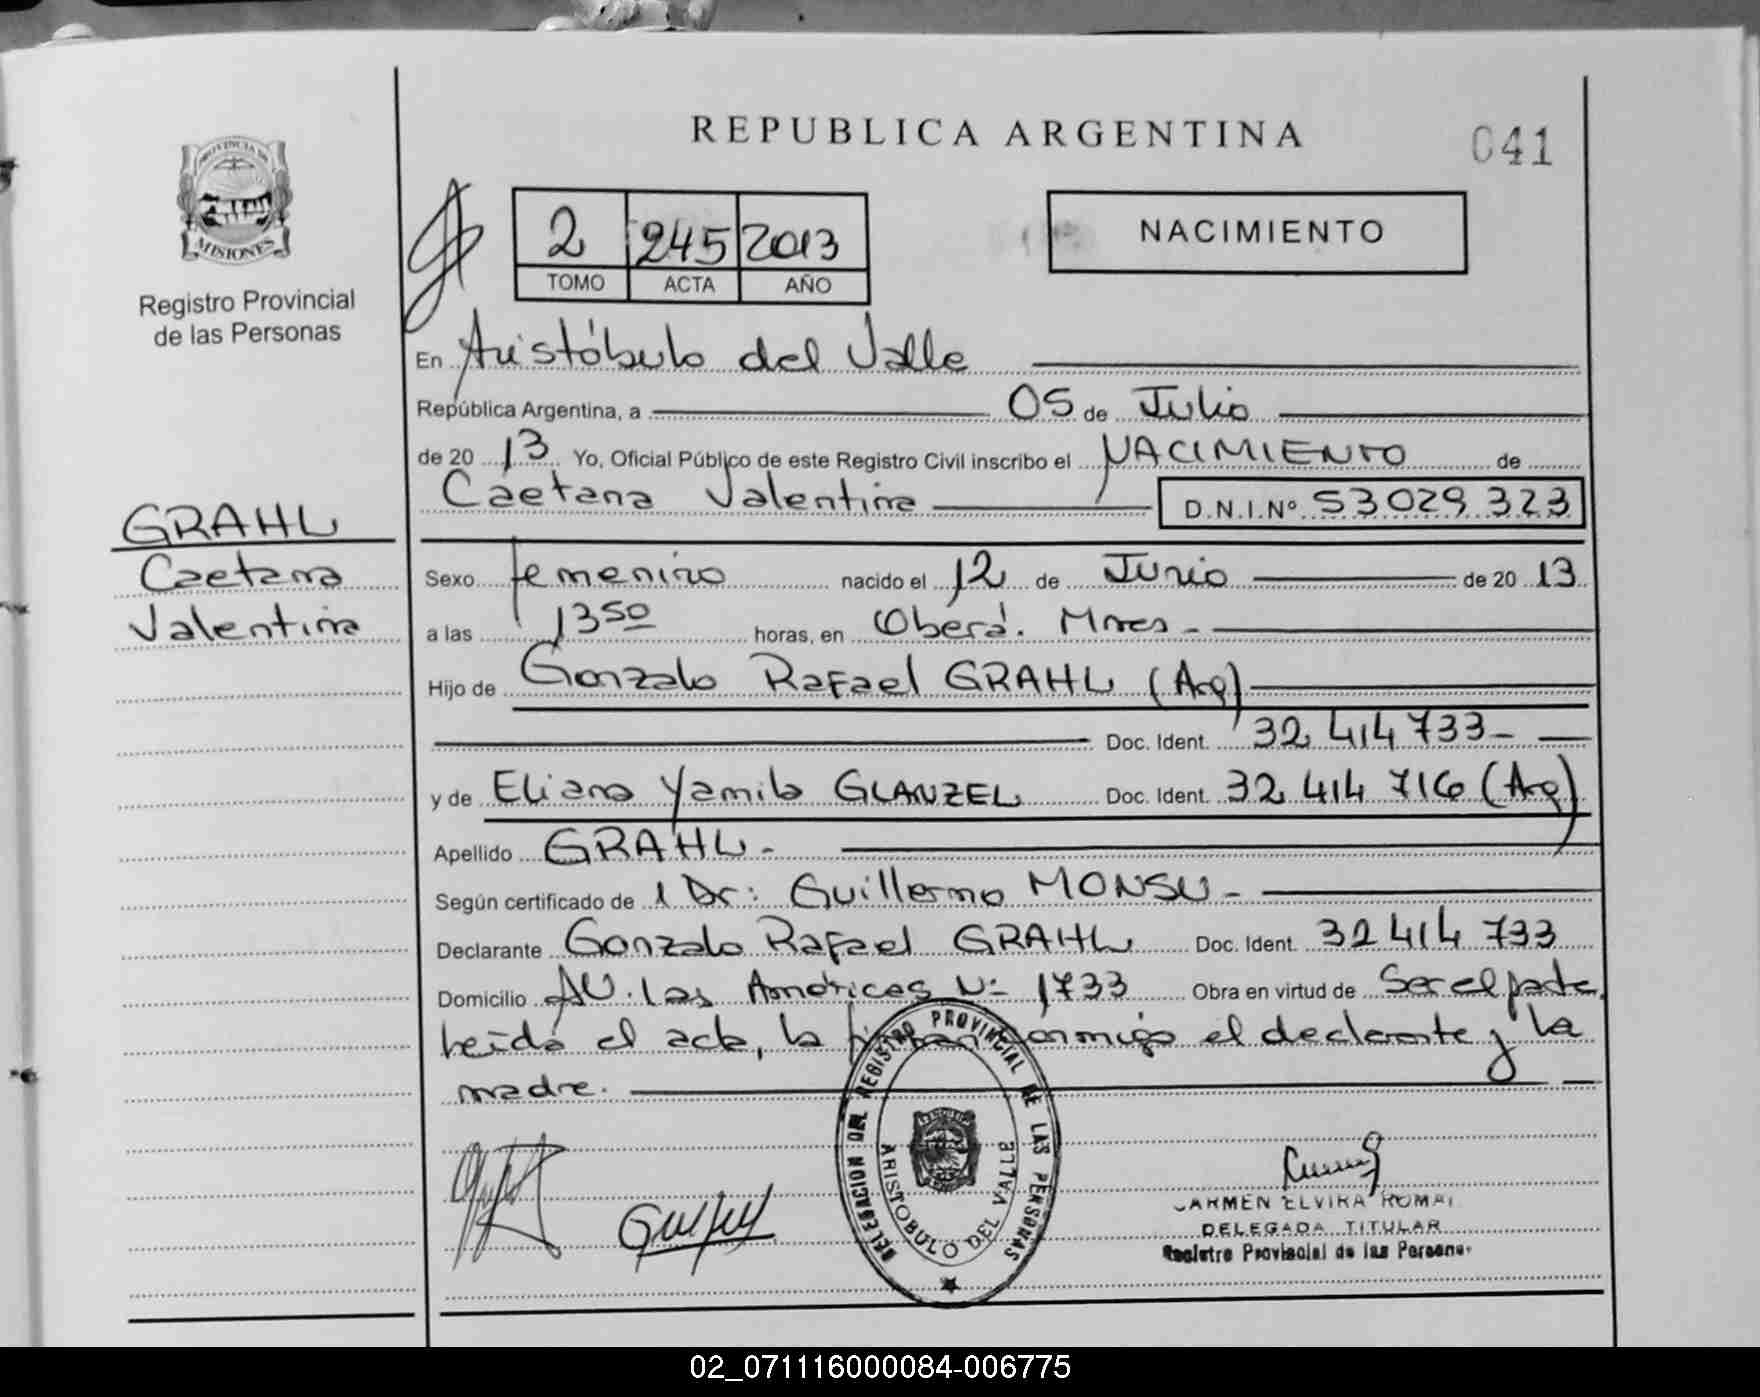 REPUBLICA ARGENTINA
041
PROVINCIA DE
MISIONES
Registro Provincial
de las Personas
2 245 2013
TOMO ACTA AÑO
NACIMIENTO
En Aristóbulo del Valle
República Argentina, a 05 de Julio
de 20 13 Yo, Oficial Público de este Registro Civil inscribo el NACIMIENTO de
Caetana Valentina D.N.I.Nº 53029323
GRAHL
Caetana
Valentina
Sexo femenino nacido el 12 de Junio de 20 13
a las 13 50 horas, en Oberá. Mnes -
Hijo de Gonzalo Rafael GRAHL (Arg)
Doc. Ident. 32 414 733-
y de Eliana Yamila GLANZEL Doc. Ident. 32 414 716 (Arg)
Apellido GRAHL-
Según certificado de 1 Dr: Guillermo MONSU-
Declarante Gonzalo Rafael GRAHL Doc. Ident. 32 414 733
Domicilio AV. las Américas Nº 1733 Obra en virtud de Ser el padre,
leída el acta, la firman conmigo el declarante y la
madre.
DELEGACION DEL REGISTRO PROVINCIAL DE LAS PERSONAS
ARISTOBULO DEL VALLE
CARMEN ELVIRA
DELEGADA TITULAR
Registro Provincial de las Personas
02_071116000084-006775